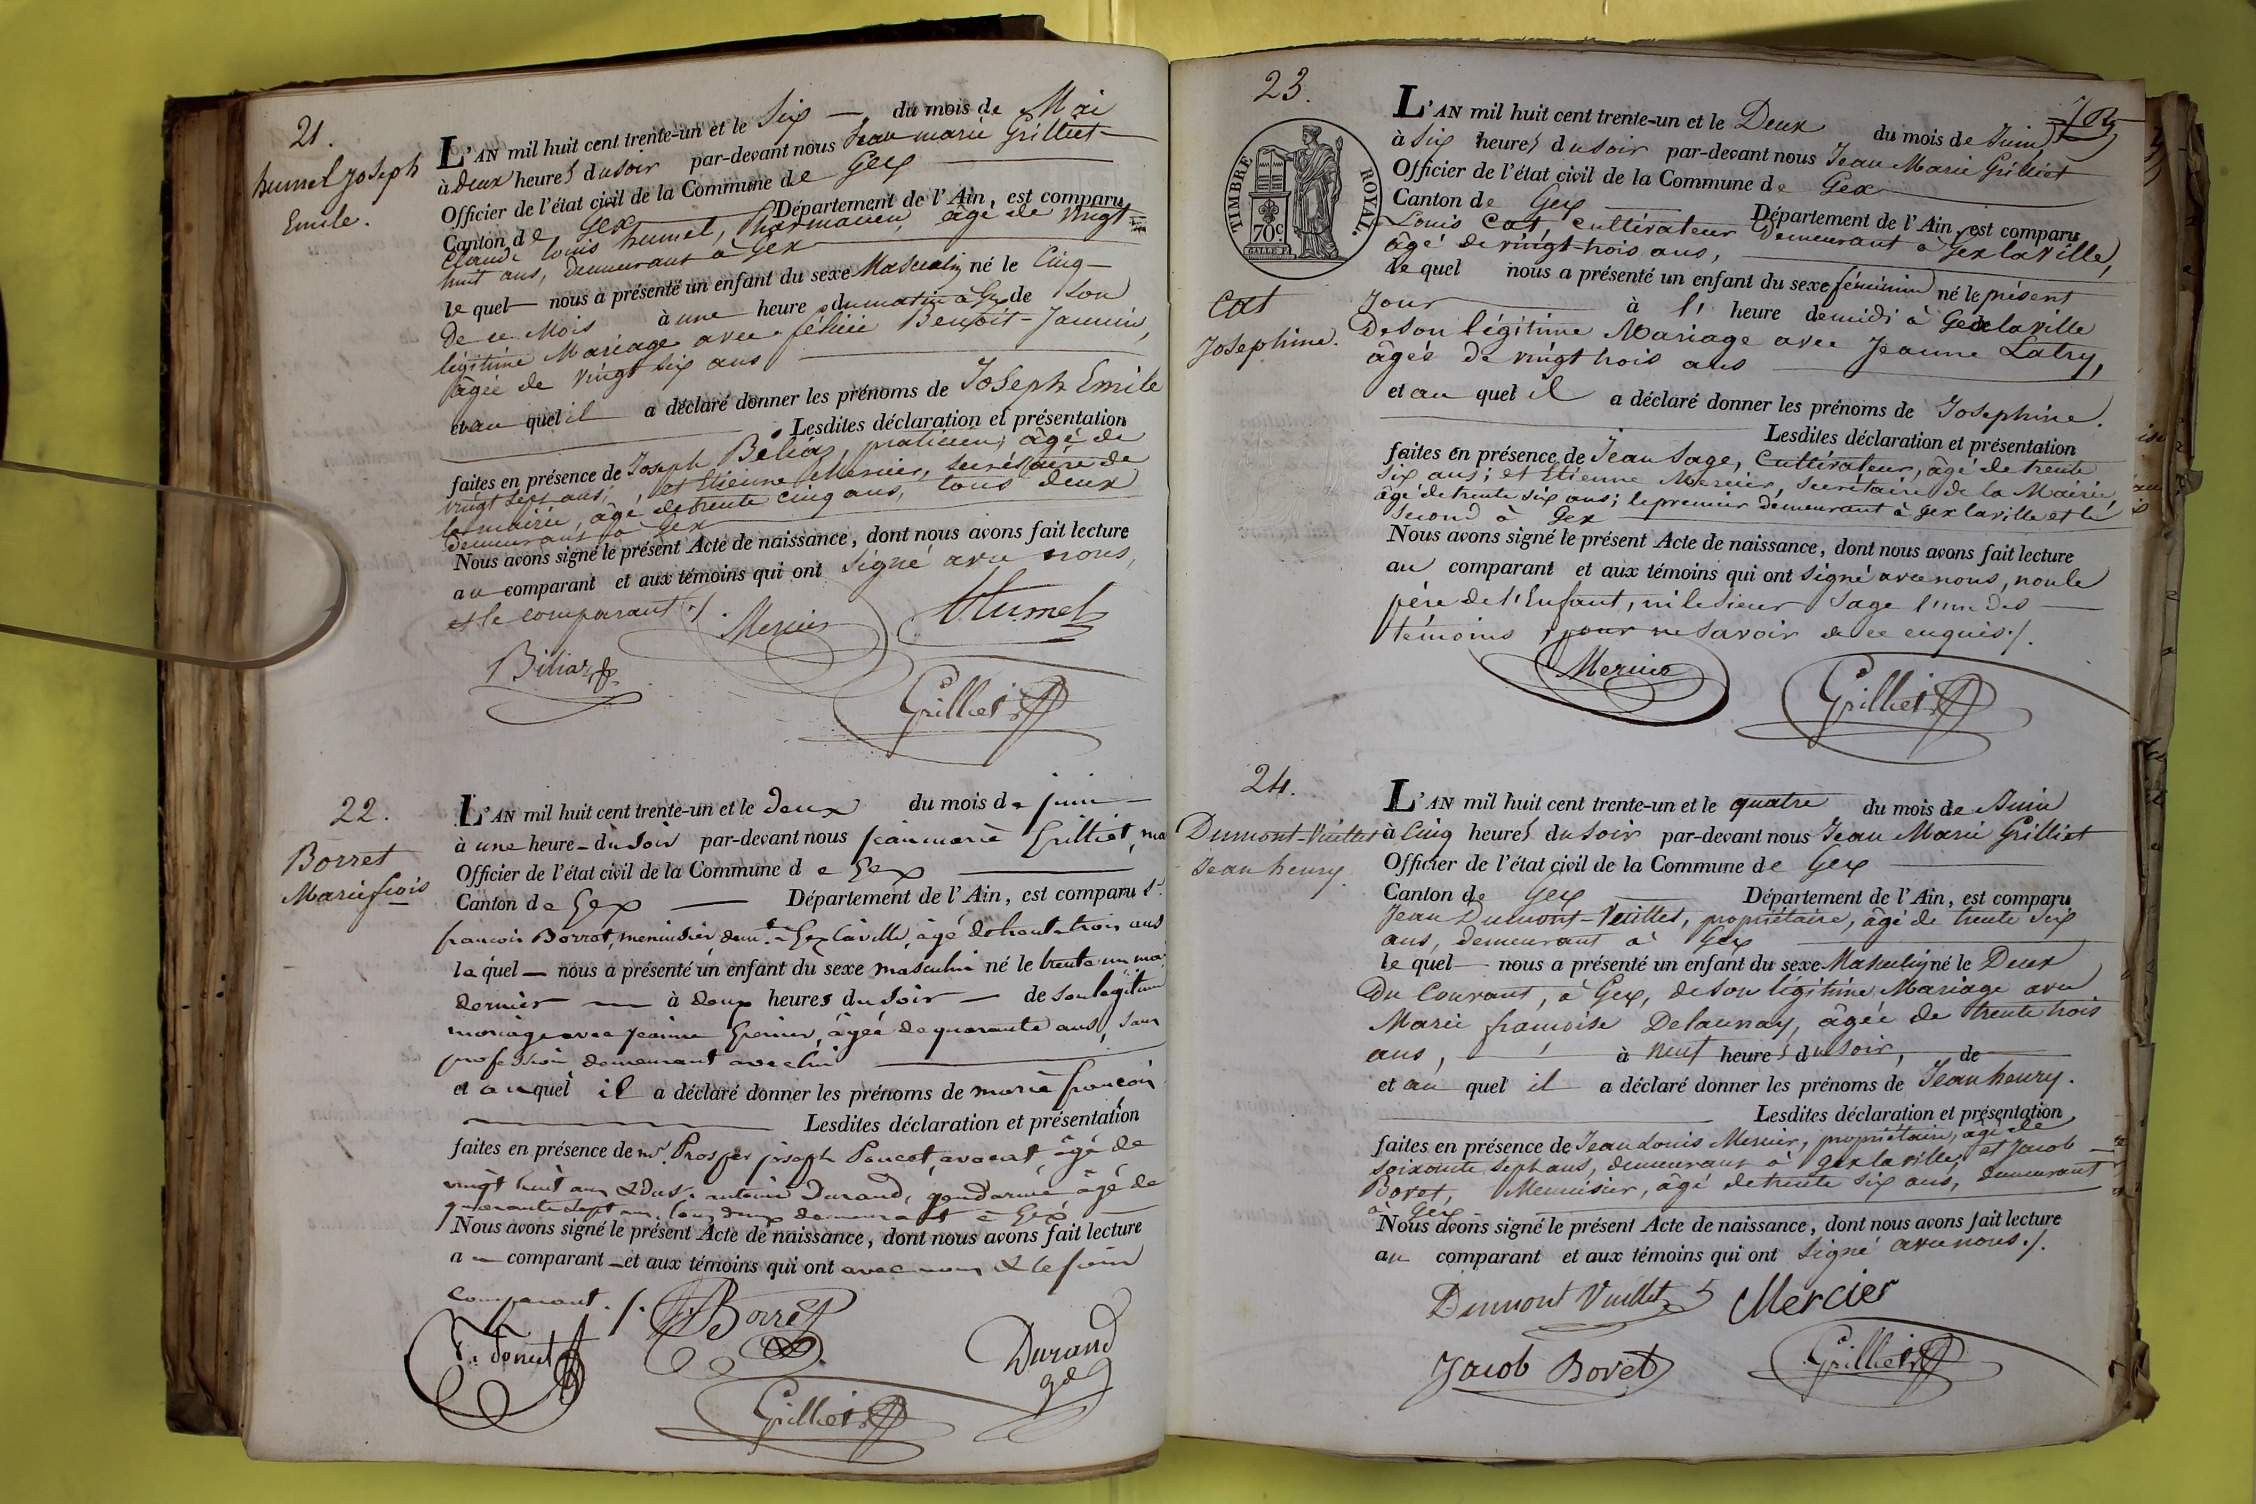 21.
humel Joseph
Emile.
L'AN mil huit cent trente-un et le Six du mois de Mai
à Deux heures du soir par-devant nous Jean marie Grilliet
Officier de l'état civil de la Commune de Gex
Canton de Gex Département de l'Ain, est comparu
Claude louis humel, Pharmacien, âgé de vingt
huit ans, demeurant à Gex
le quel nous a présenté un enfant du sexe Masculin né le Cinq
de ce Mois à une heure du matin à Gex de son
légitime Mariage avec félicie Benoit-Jannin,
âgée de vingt six ans
et au quel il a déclaré donner les prénoms de Joseph Emile
Lesdites déclaration et présentation
faites en présence de Joseph Béliaz, praticien, âgé de
vingt sept ans, et Etienne Mercier, secrétaire de
la mairie, âgé de trente cinq ans, tous deux
demeurant à Gex
Nous avons signé le présent Acte de naissance, dont nous avons fait lecture
au comparant et aux témoins qui ont signé avec nous,
et le comparant ./.
Mercier
Humel
Grilliet
22.
Borret
Marie frçois
L'AN mil huit cent trente-un et le deux du mois de juin
à une heure du soir par-devant nous jean marie Grilliet, ma
Officier de l'état civil de la Commune de Gex
Canton de Gex Département de l'Ain, est comparu Sr.
francois Borret, menuisier demt. à Gex la ville, âgé de trente trois ans
le quel nous a présenté un enfant du sexe masculin né le trente un mai
dernier à deux heures du soir de son légitime
mariage avec jeanne Grenier, âgée de quarante ans, sans
profession demeurant avec lui
et au quel il a déclaré donner les prénoms de marie françois
Lesdites déclaration et présentation
faites en présence de mr. Prosper joseph Poncet, avocat, âgé de
vingt huit ans & du Sr. antoine Durand, gendarme, âgé de
quarante sept ans, tous deux demeurant à Gex
Nous avons signé le présent Acte de naissance, dont nous avons fait lecture
au comparant et aux témoins qui ont avec nous & le sieur
comparant ./.
Borret
Durand
Grilliet
23.
TIMBRE ROYAL.
70c
Cat
Josephine.
L'AN mil huit cent trente-un et le Deux du mois de Juin
à Six heures du soir par-devant nous Jean Marie Grilliet
Officier de l'état civil de la Commune de Gex
Canton de Gex Département de l'Ain, est comparu
Louis Cat, cultivateur demeurant à Gex la ville,
âgé de vingt-trois ans,
le quel nous a présenté un enfant du sexe féminin né le présent
Jour à l' heure de midi à Gex la ville
De son légitime Mariage avec Jeanne Latry,
âgée de vingt trois ans
et au quel il a déclaré donner les prénoms de Josephine.
Lesdites déclaration et présentation
faites en présence de Jean Sage, Cultivateur, âgé de trente
six ans; et Etienne Mercier, secrétaire de la Mairie,
âgé de trente six ans; le premier demeurant à gex la ville et le
second à Gex
Nous avons signé le présent Acte de naissance, dont nous avons fait lecture
au comparant et aux témoins qui ont signé avec nous, non le
père de l'Enfant, ni le sieur Sage l'un des
témoins pour ne savoir de ce enquis ./.
Mercier
Grilliet
24.
Dumont-Vuillet
Jean henry.
L'AN mil huit cent trente-un et le quatre du mois de Juin
à Cinq heures du soir par-devant nous Jean Marie Grilliet
Officier de l'état civil de la Commune de Gex
Canton de Gex Département de l'Ain, est comparu
Jean Dumont-Vuillet, propriétaire, âgé de trente six
ans, demeurant à Gex
le quel nous a présenté un enfant du sexe Masculin né le Deux
Du Courant, à Gex, de son légitime Mariage avec
Marie françoise Delaunay, âgée de trente trois
ans, à neuf heures du soir, de
et au quel il a déclaré donner les prénoms de Jean henry.
Lesdites déclaration et présentation
faites en présence de Jean Louis Mercier, propriétaire, âgé de
soixante sept ans, demeurant à gex la ville, et Jacob
Bovet, Menuisier, âgé de trente six ans, demeurant
à Gex
Nous avons signé le présent Acte de naissance, dont nous avons fait lecture
au comparant et aux témoins qui ont signé avec nous ./.
Dumont Vuillet
Mercier
Jacob Bovet
Grilliet